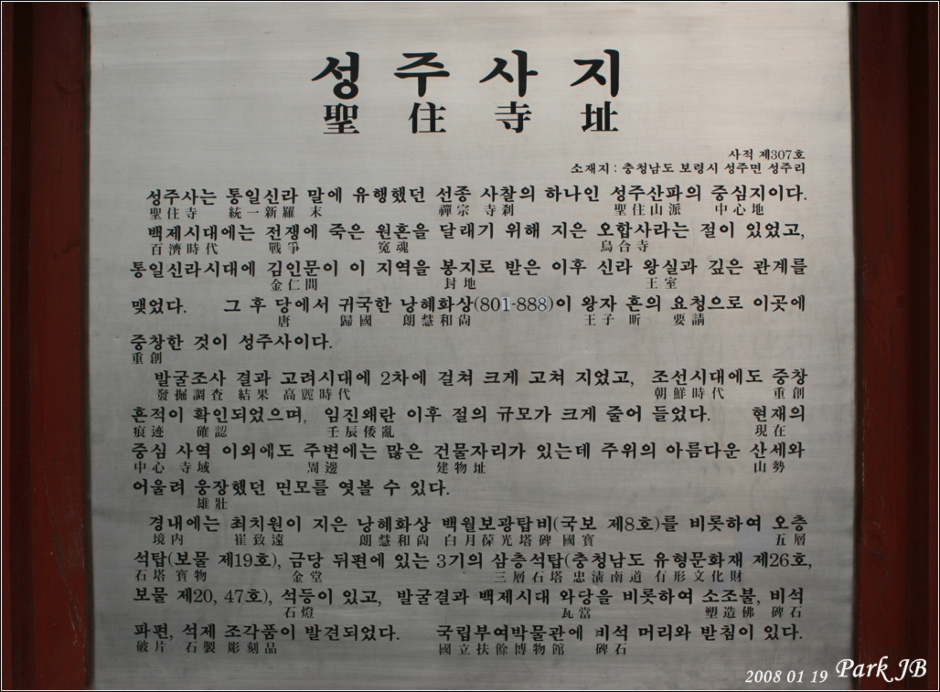 성주사지
聖住寺址
사적 제307호
소재지 : 충청남도 보령시 성주면 성주리
성주사는 통일신라 말에 유행했던 선종 사찰의 하나인 성주산파의 중심지이다.
聖住寺 統一新羅 末 禪宗 寺刹 聖住山派 中心地
백제시대에는 전쟁에 죽은 원혼을 달래기 위해 지은 오합사라는 절이 있었고,
百濟時代 戰爭 冤魂 烏合寺
통일신라시대에 김인문이 이 지역을 봉지로 받은 이후 신라 왕실과 깊은 관계를
金仁問 封地 王室
맺었다. 그 후 당에서 귀국한 낭혜화상(801-888)이 왕자 흔의 요청으로 이곳에
唐 歸國 朗慧和尙 王子 昕 要請
중창한 것이 성주사이다.
重創
발굴조사 결과 고려시대에 2차에 걸쳐 크게 고쳐 지었고, 조선시대에도 중창
發掘調査 結果 高麗時代 朝鮮時代 重創
흔적이 확인되었으며, 임진왜란 이후 절의 규모가 크게 줄어 들었다. 현재의
痕迹 確認 壬辰倭亂 現在
중심 사역 이외에도 주변에는 많은 건물자리가 있는데 주위의 아름다운 산세와
中心 寺域 周邊 建物址 山勢
어울려 웅장했던 면모를 엿볼 수 있다.
雄壯
경내에는 최치원이 지은 낭혜화상 백월보광탑비(국보 제8호)를 비롯하여 오층
境內 崔致遠 朗慧和尙 白月葆光塔碑 國寶 五層
석탑(보물 제19호), 금당 뒤편에 있는 3기의 삼층석탑(충청남도 유형문화재 제26호,
石塔 寶物 金堂 三層石塔 忠淸南道 有形文化財
보물 제20, 47호), 석등이 있고, 발굴결과 백제시대 와당을 비롯하여 소조불, 비석
石燈 瓦當 塑造佛 碑石
파편, 석제 조각품이 발견되었다. 국립부여박물관에 비석 머리와 받침이 있다.
破片 石製 彫刻品 國立扶餘博物館 碑石
2008 01 19 Park JB